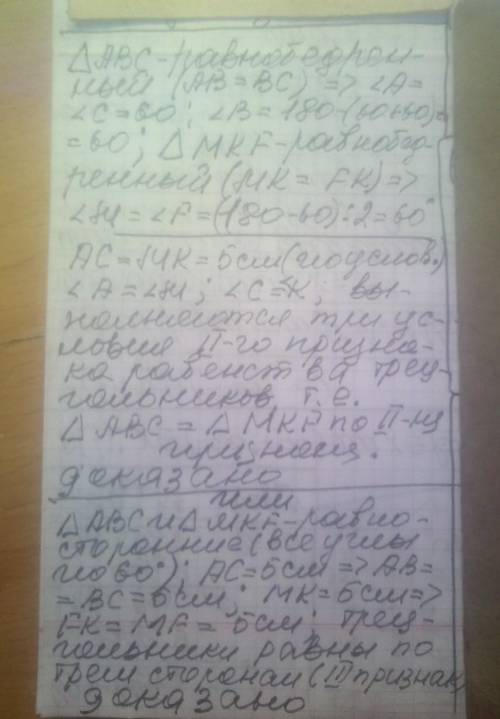 △ABC-равнобедрен-
ный (AB=BC) => ∠A=
∠C=60; ∠B=180-(60+60)=
=60; △MKF-равнобед-
ренный (MK=FK)=>
∠M=∠F=(180-60):2=60°
AC=MK=5см(по услов.)
∠A=∠M; ∠C=K; вы-
полняются три ус-
ловия II-го призна-
ка равенства треу-
гольников т.е.
△ABC=△MKF по II-му
признаку.
доказано
или
△ABC и △MKF-равно-
сторонние (все углы
по 60°); AC=5см => AB=
=BC=5см; MK=5см=>
FK=MF=5см; треу-
гольники равны по
трем сторонам (III признак)
доказано